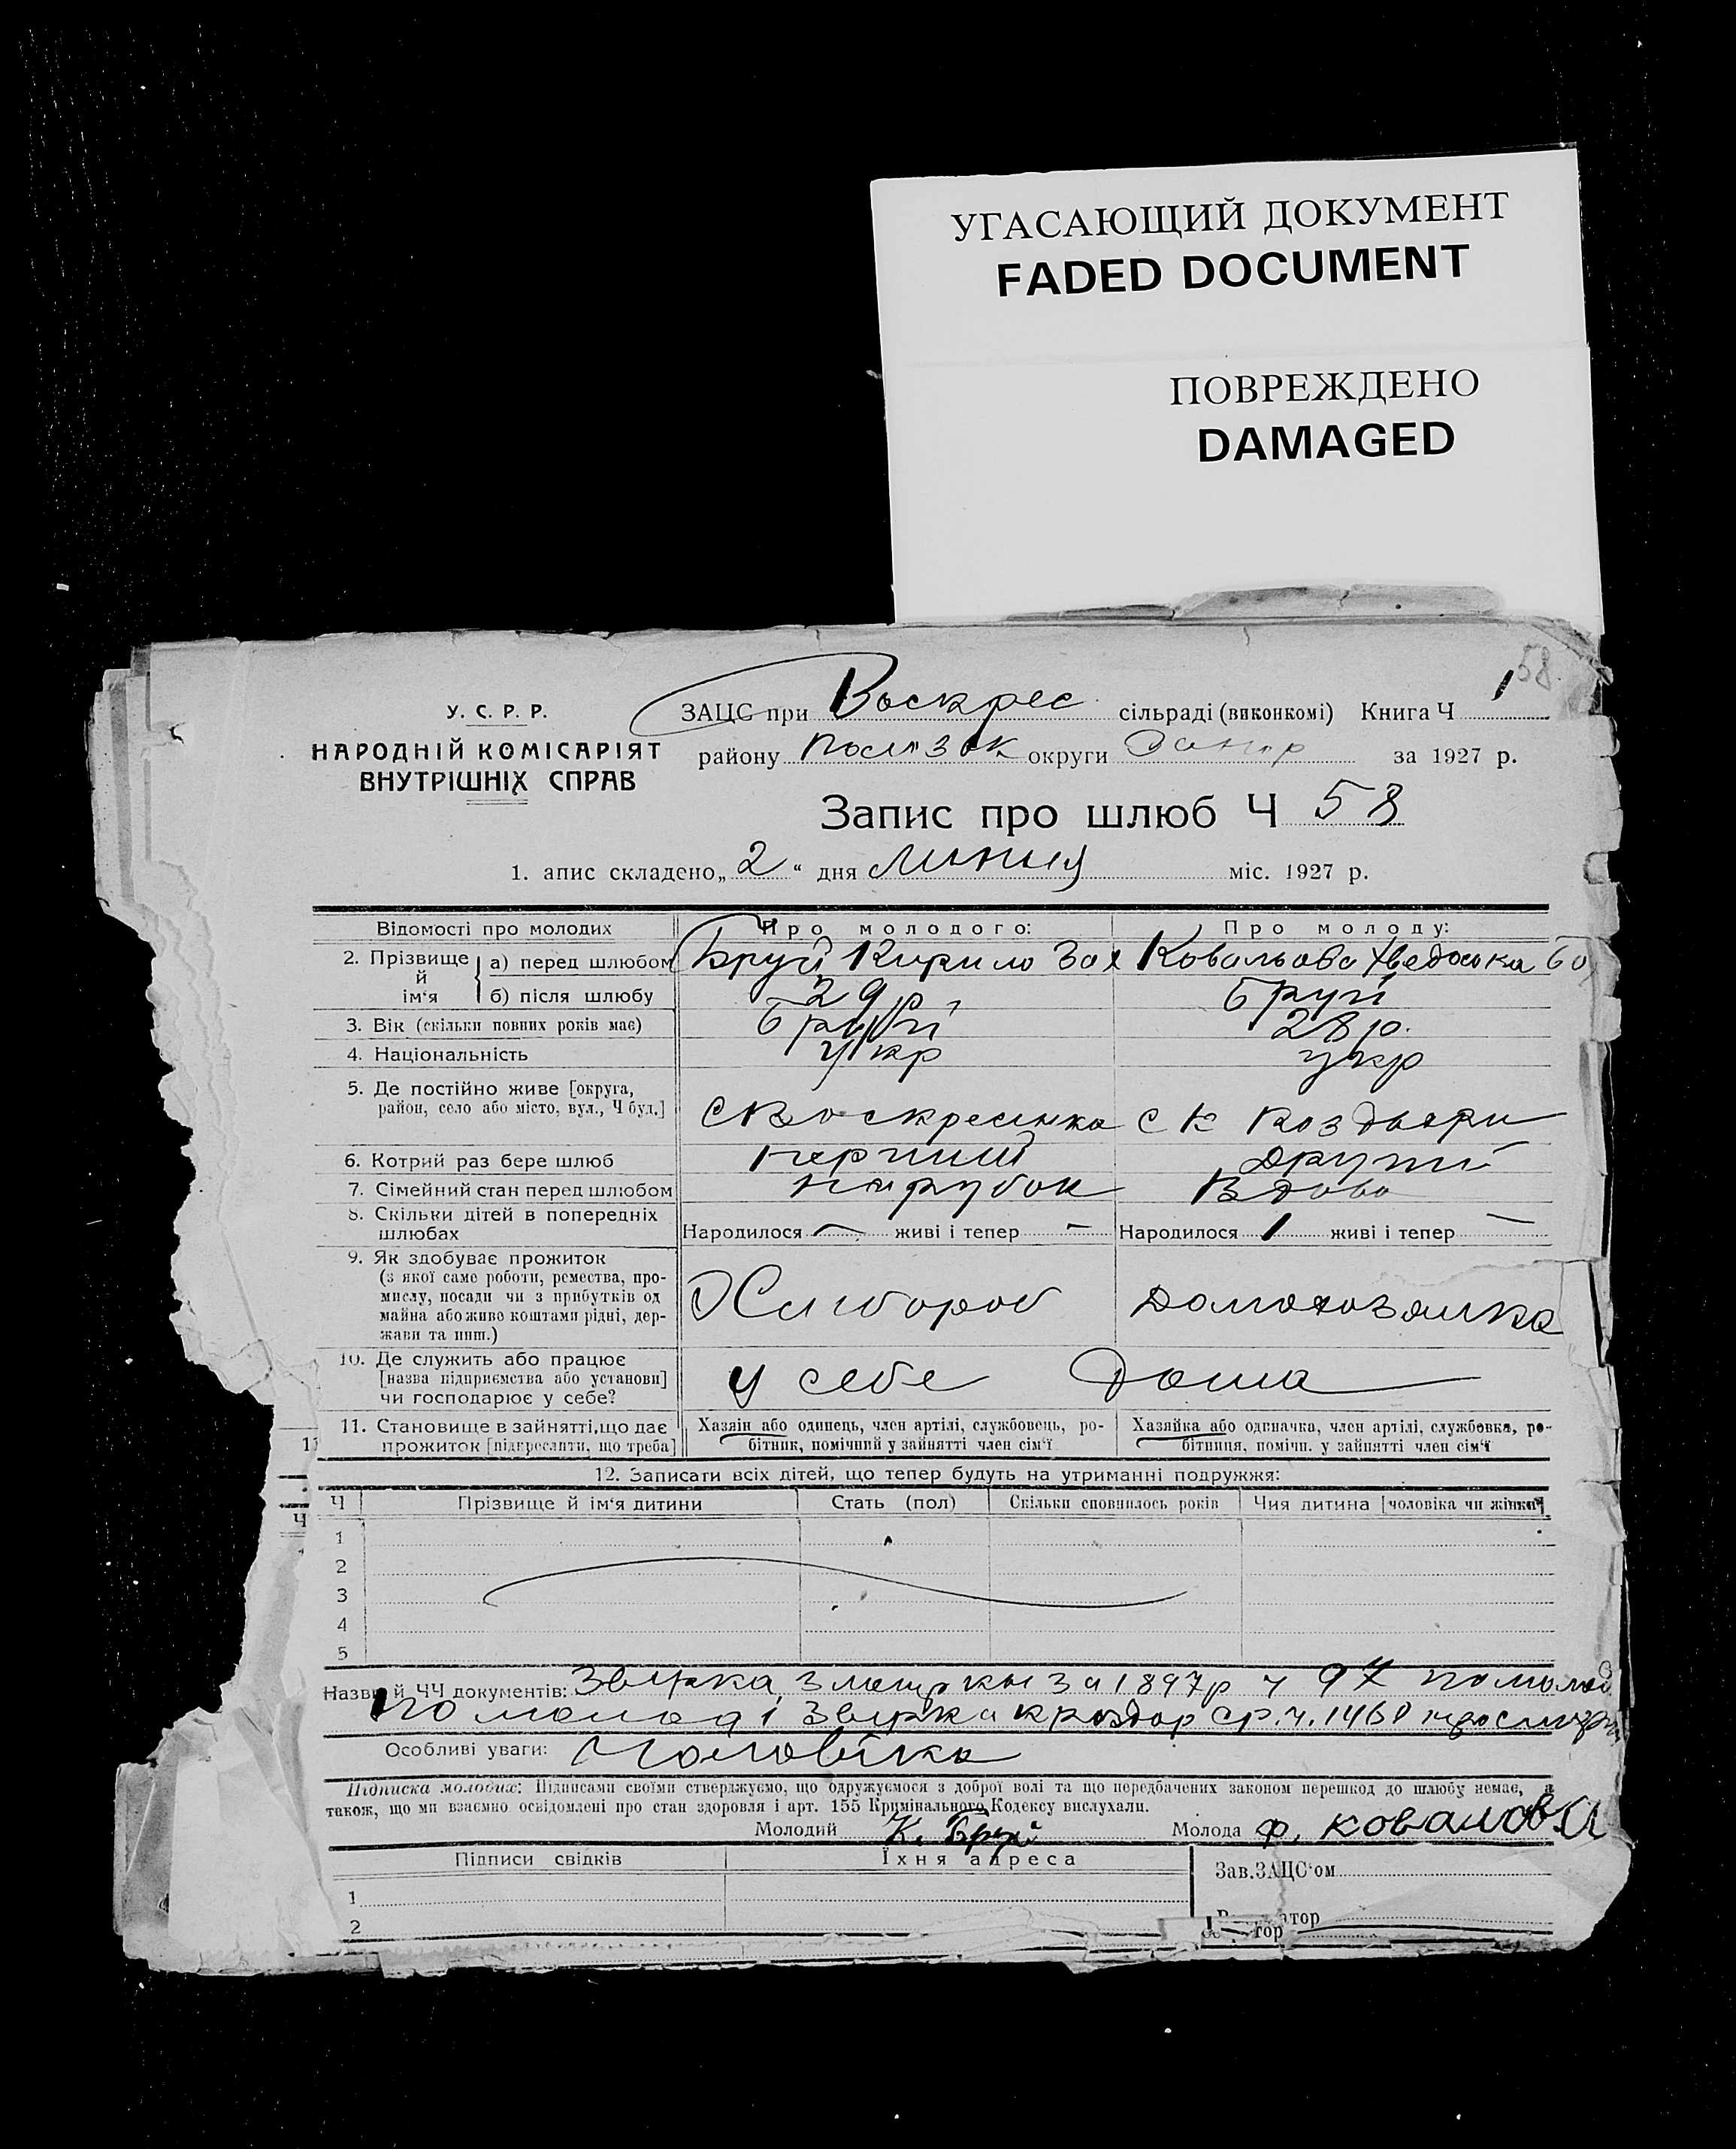 УГАСАЮЩИЙ ДОКУМЕНТ
FADED DOCUMENT
ПОВРЕЖДЕНО
DAMAGED
58
У. С. Р. Р.
НАРОДНІЙ КОМІСАРІЯТ
ВНУТРІШНІХ СПРАВ
ЗАЦС при Воскрес сільраді (виконкомі) Книга Ч 1
району округи за 1927 р.
Запис про шлюб Ч 58
1. апис складено „ 2 “ дня Липня міс. 1927 р.
Відомості про молодих Про молодого: Про молоду:
2. Прізвище й ім‘я
а) перед шлюбом Бруй Кирило Зах Ковальова Хведоска
б) після шлюбу 29 р Бруй
3. Вік (скільки повних років має) Бруй 28 р.
4. Національність укр укр
5. Де постійно живе [округа,
район, село або місто, вул., Ч буд.] с Воскресенка с
6. Котрий раз бере шлюб перший другий
7. Сімейний стан перед шлюбом парубок Вдова
8. Скільки дітей в попередніх
шлюбах Народилося — живі і тепер — Народилося 1 живі і тепер —
9. Як здобуває прожиток
(з якої саме роботи, ремества, про-
мислу, посади чи з прибутків од
майна або живе коштами рідні, дер-
жави та инш.) Хлібороб домохозяйка
10. Де служить або працює
[назва підприємства або установи]
чи господарює у себе? у себе дома
11. Становище в зайнятті, що дає
прожиток [підкреслити, що треба]
Хазяїн або одинець, член артілі, службовець, ро-
бітник, помічний у зайнятті член сім‘ї
Хазяйка або одначка, член артілі, службовка, ро-
бітниця, помічн. у зайнятті член сім‘ї
12. Записати всіх дітей, що тепер будуть на утриманні подружжя:
Ч Прізвище й ім‘я дитини Стать (пол) Скільки сповнилось років Чия дитина [чоловіка чи жінки]
1
2
3
4
5
Назви й ЧЧ документів: за 1897 р ч 97 по молод
по молоді ч. 1460
Особливі уваги: Чоловіка
Підписка молодих: Підписами своїми стверджуємо, що одружуємося з доброї волі та що передбачених законом перешкод до шлюбу немає, а
також, що ми взаємно освідомлені про стан здоровля і арт. 155 Кримінального Кодексу вислухали.
Молодий К. Бруй Молода Ф. Ковальова
Підписи свідків Їхня адреса Зав. ЗАЦС‘ом
1
2
тор